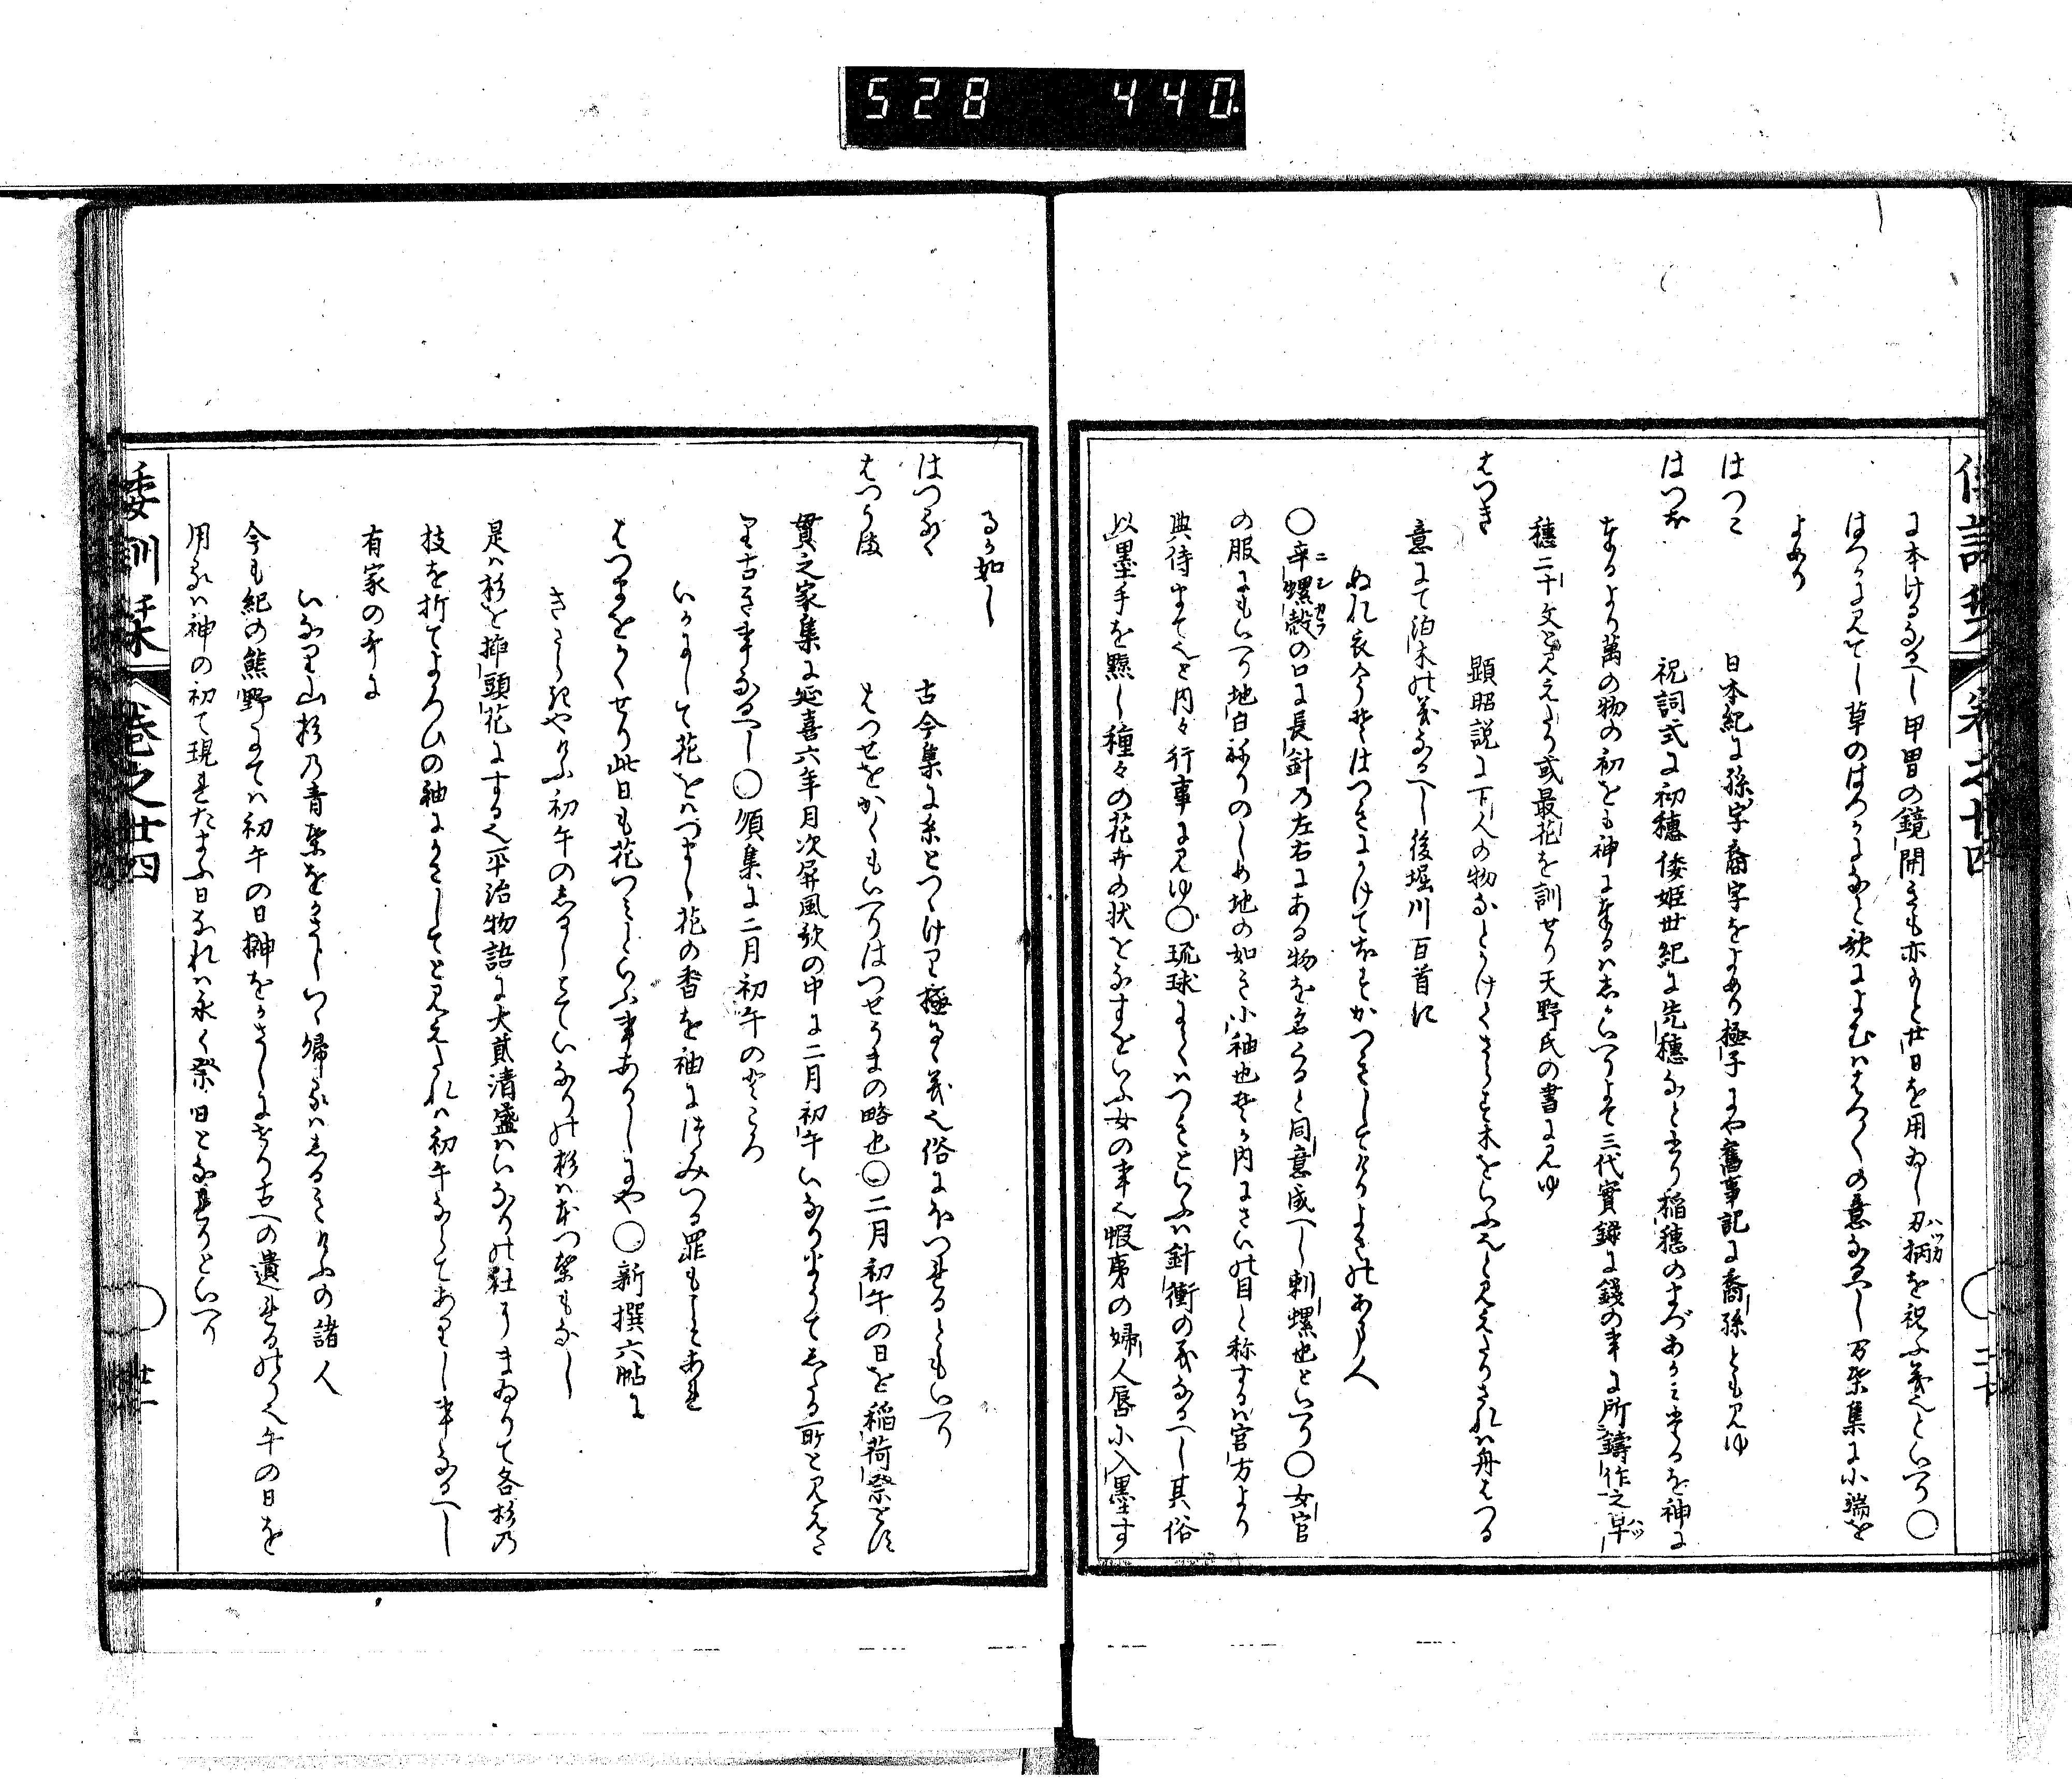 528 440
倭訓栞 巻之廿四 二十
に本けるなるへし甲冑の鏡開きも亦もと廿日を用ゐし刃柄を祝ふ義也といへり○
はつかに見えし草のはつかになと歌によむははつ〱の意なるへし万葉集に小端を
よめり
はつこ 日本紀に孫字裔字をよめり極子にや舊事記に裔孫とも見ゆ
はつほ 祝詞式に初穂倭姫世紀に先穂なと書り稲穂のまづあからみたるを神に
奉るより萬の物の初をも神に奉るはしかいへりよて三代實録に銭の事に所鑄作之早
穂二十文と見えたり或最花を訓せり天野氏の書に見ゆ
はつき 顕昭説に下人の物なとかけてさらす木をいふ也と見えたりされは舟はつる
意にて泊木の義なるへし後堀川百首に
ぬれ衣
○辛螺殻の口に長針の左右にある物を名くると同意成へし刺螺也といへり○女官
の服にもいへり地白ねりのしめ地の如き小袖也そか内にさいの目と称するは官方より
典侍まて也と内々行事に見ゆ○琉球にてはつきといふは針衝の義なるへし其俗
以墨手を黥し種々の花卉の状をなすをいふ女の事也蝦夷の婦人唇に入墨す
るか如し
はつなく 古今集に糸とつゝけり極なく義也俗にほつるともいへり
はつうま はつせをかくもいへりはつせうまの略也○二月初午の日を稲荷祭とす
貫之家集に延喜六年月次屏風歌の中に二月初午いなりまうてしたる所と見えた
り古き事なるへし○須集に二月初午のところ
いかにして花をはつまし花の香を袖につみつる罪もこそあれ
はつまをかくせり此日も花つみといふ事ありしにや○新撰六帖に
きさらきやけふ初午のしるしとていなりの杉は本つ葉もなし
是は杉を挿頭花にする也平治物語に大貳清盛はいなりの社にまゐりて各杉の
枝を折てよろひの袖にさしてと見えたれは初午ならてありし事なるへし
有家の歌に
いなり山杉の青葉をかさしつゝ帰るはしるきけふの諸人
今も紀の熊野にては初午の日榊をかさしにせり古への遺れるなり午の日を
用るは神の初て現れたまふ日なれは永く祭日となれりといへり
倭訓栞 巻之廿四 廿一